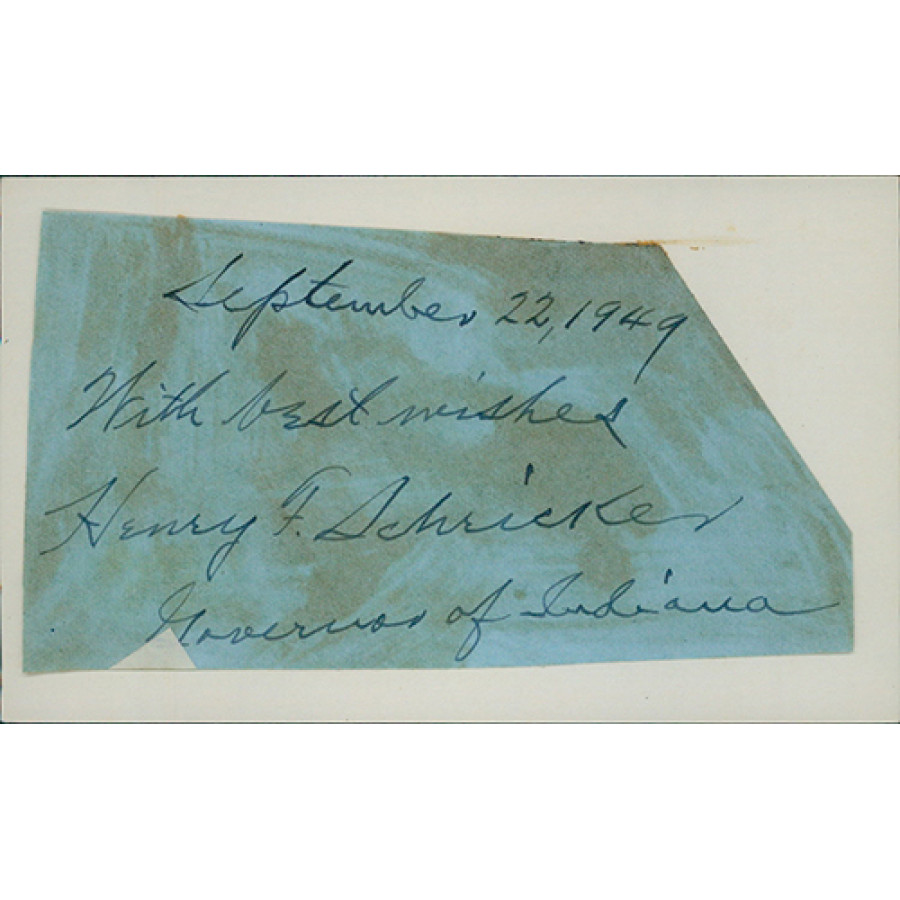 September 22, 1949
With best wishes
Henry F. Schricker
Governor of Indiana